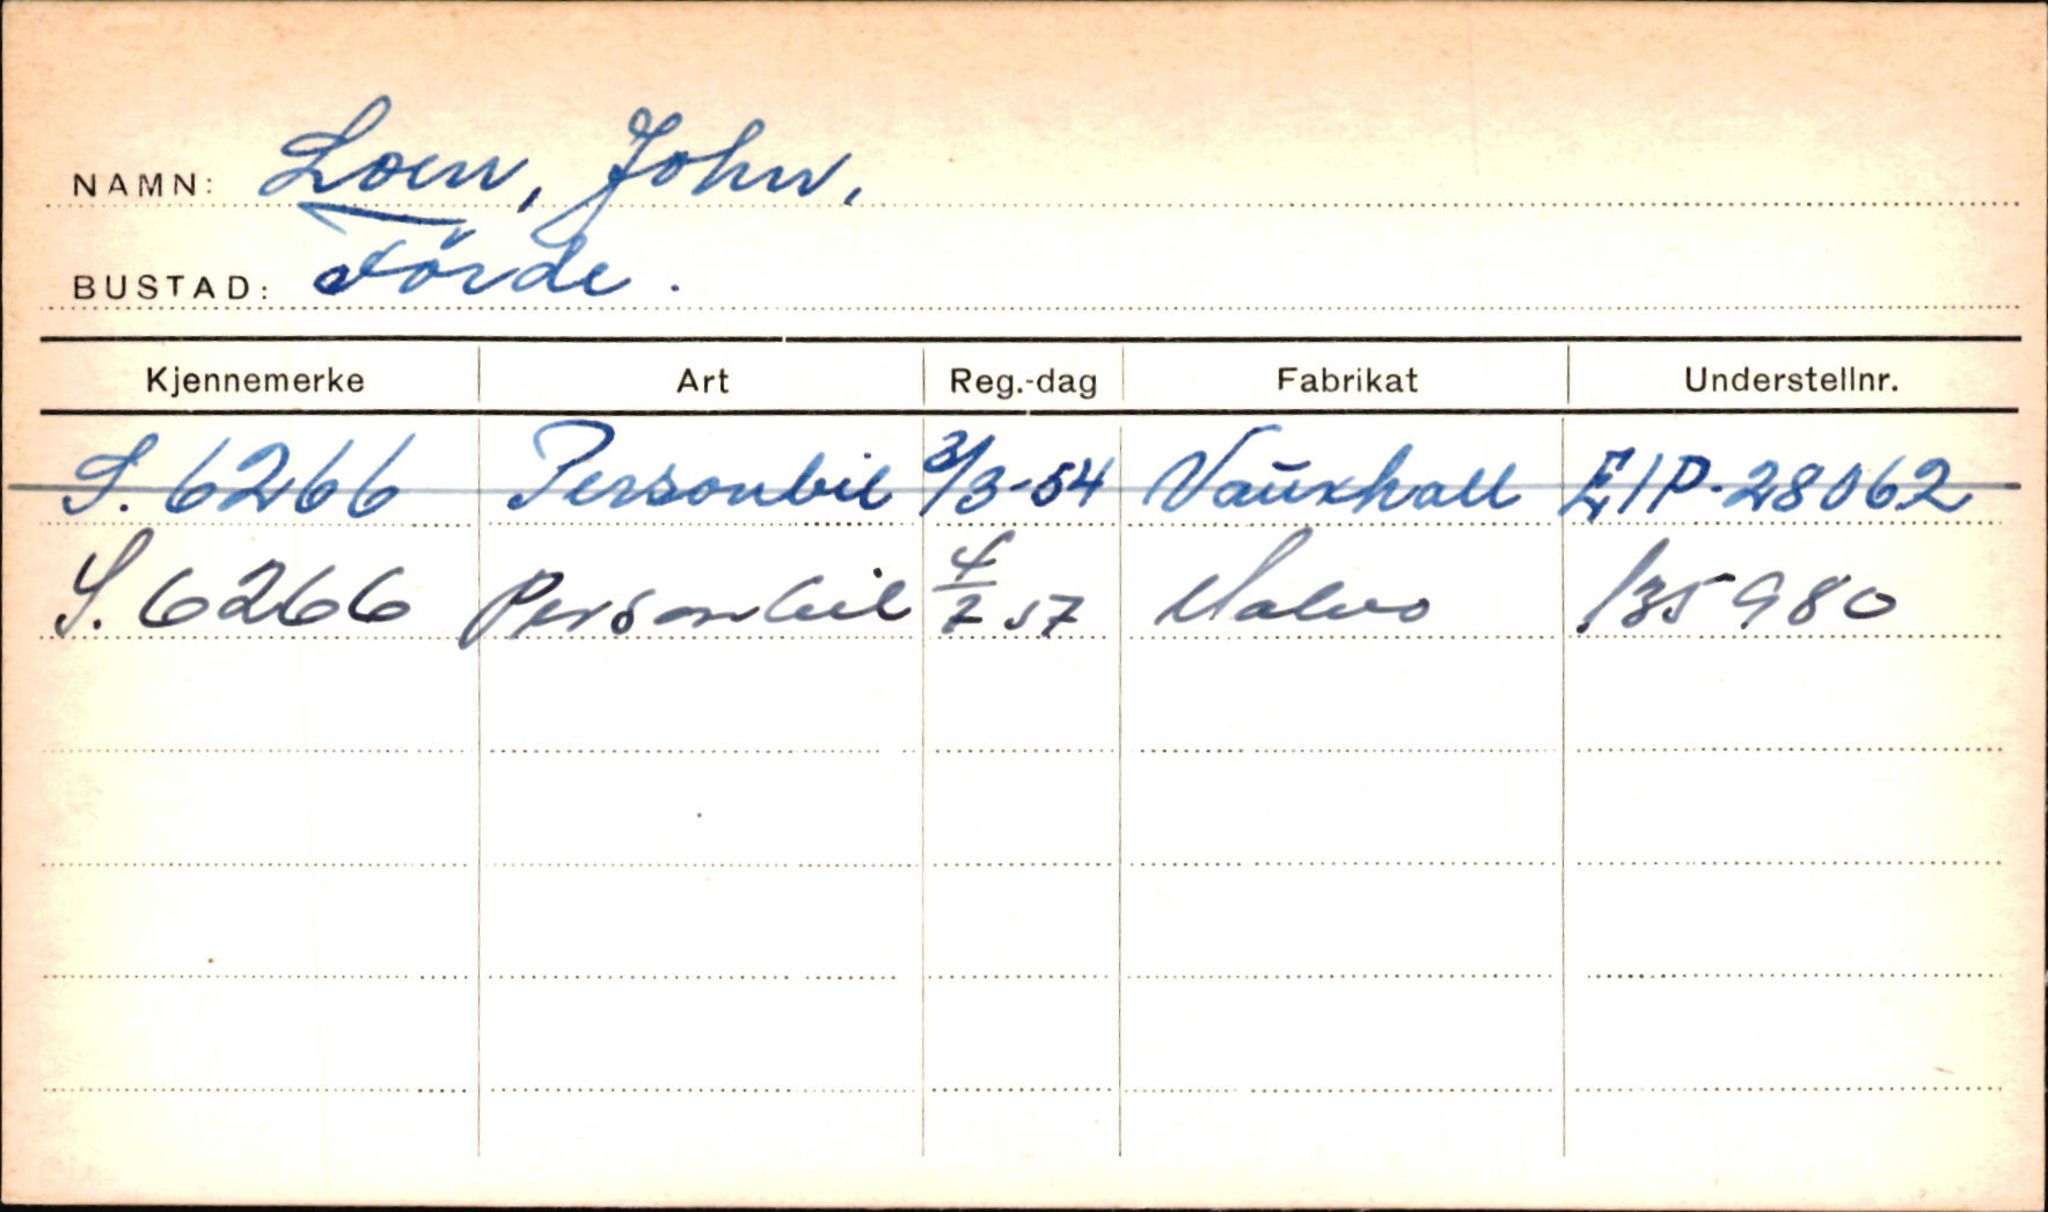 NAMN: Loen, John.
BUSTAD: Förde.
Kjennemerke Art Reg.-dag Fabrikat Understellnr.
S. 6266 Personbil 3/3-54 Vauxhall EIP-28062
S. 6266 Personbil 4/7 57 Volvo 135980